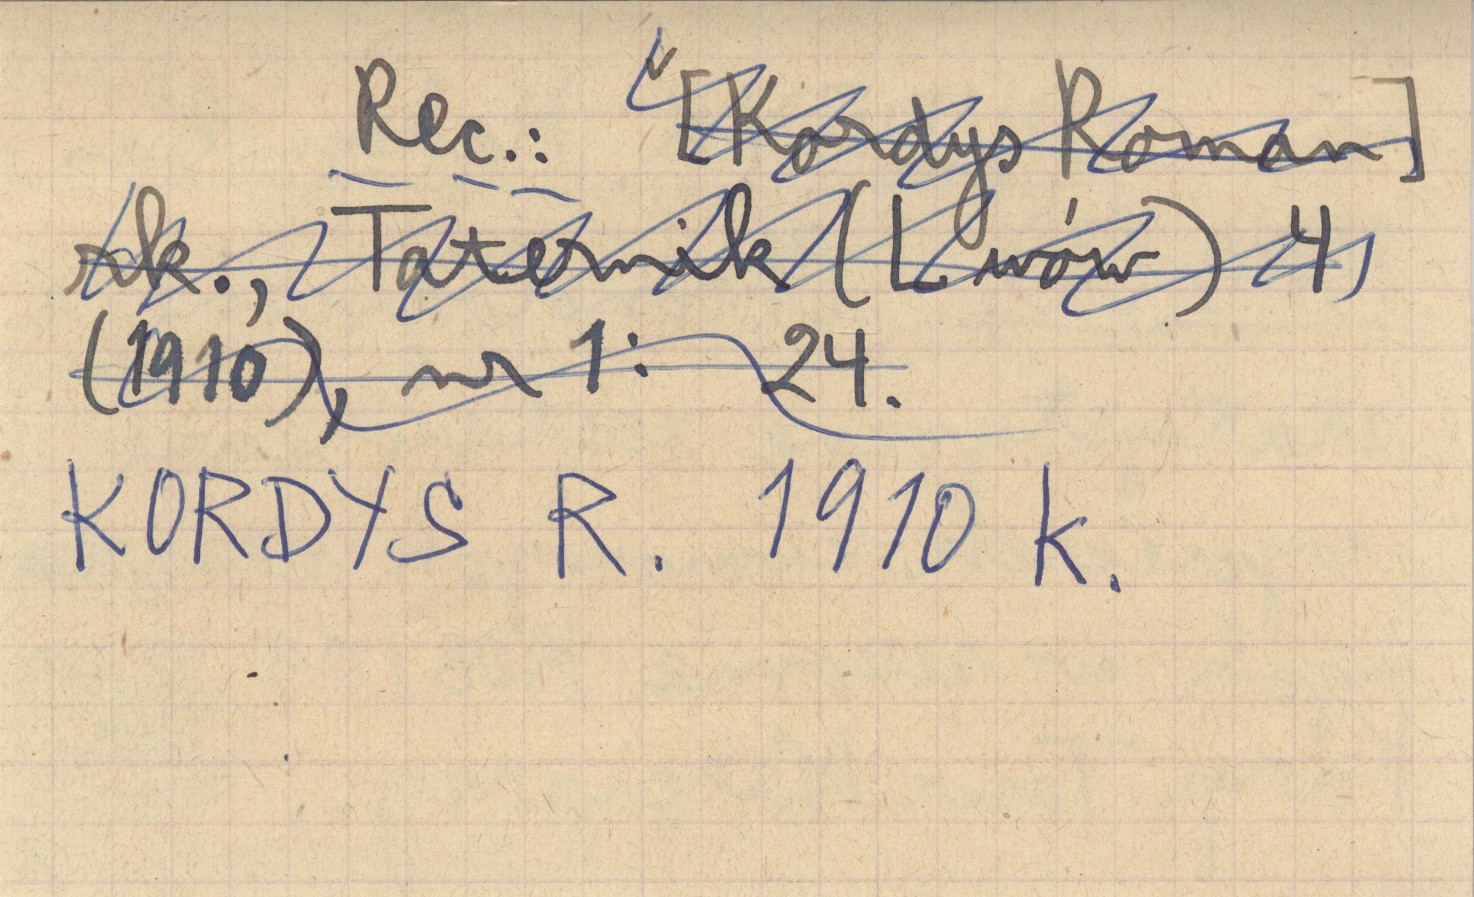 Rec.: [Kordys Roman]
rk., Taternik (Lwów) 4,
(1910), nr 1: 24.
KORDYS R. 1910 k.